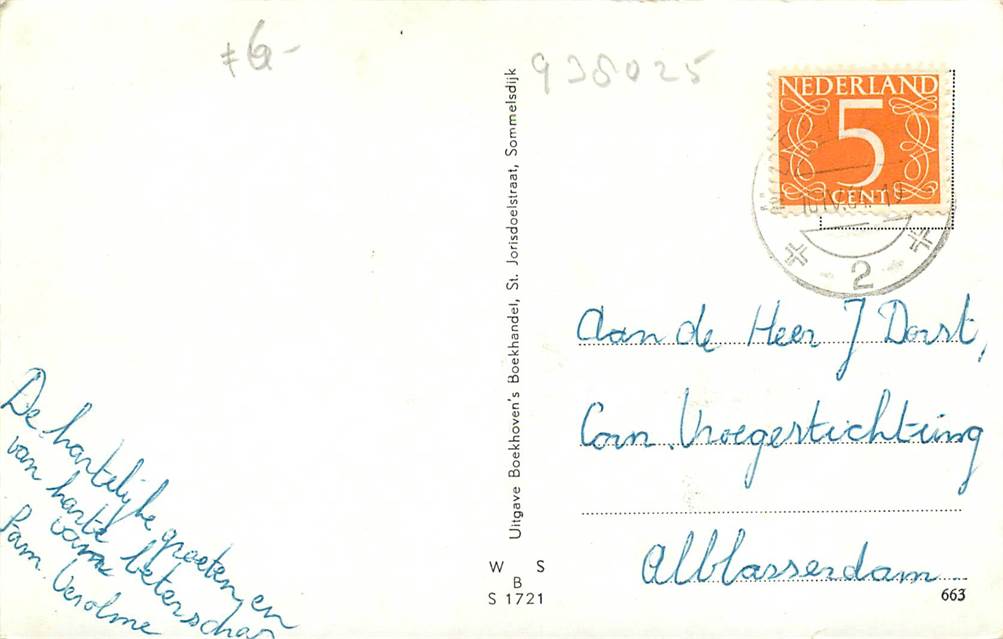 ≠ 6,-
938025
NEDERLAND
5
CENT
10.IV.64.-19
- 2 -
Aan de Heer J Dorst,
Corn. Vroegestichting
Alblasserdam
663
Uitgave Boekhoven's Boekhandel, St. Jorisdoelstraat, Sommelsdijk
W S
B
S 1721
De hartelijke groeten, en
van harte beterschap
van
Fam. Verolme